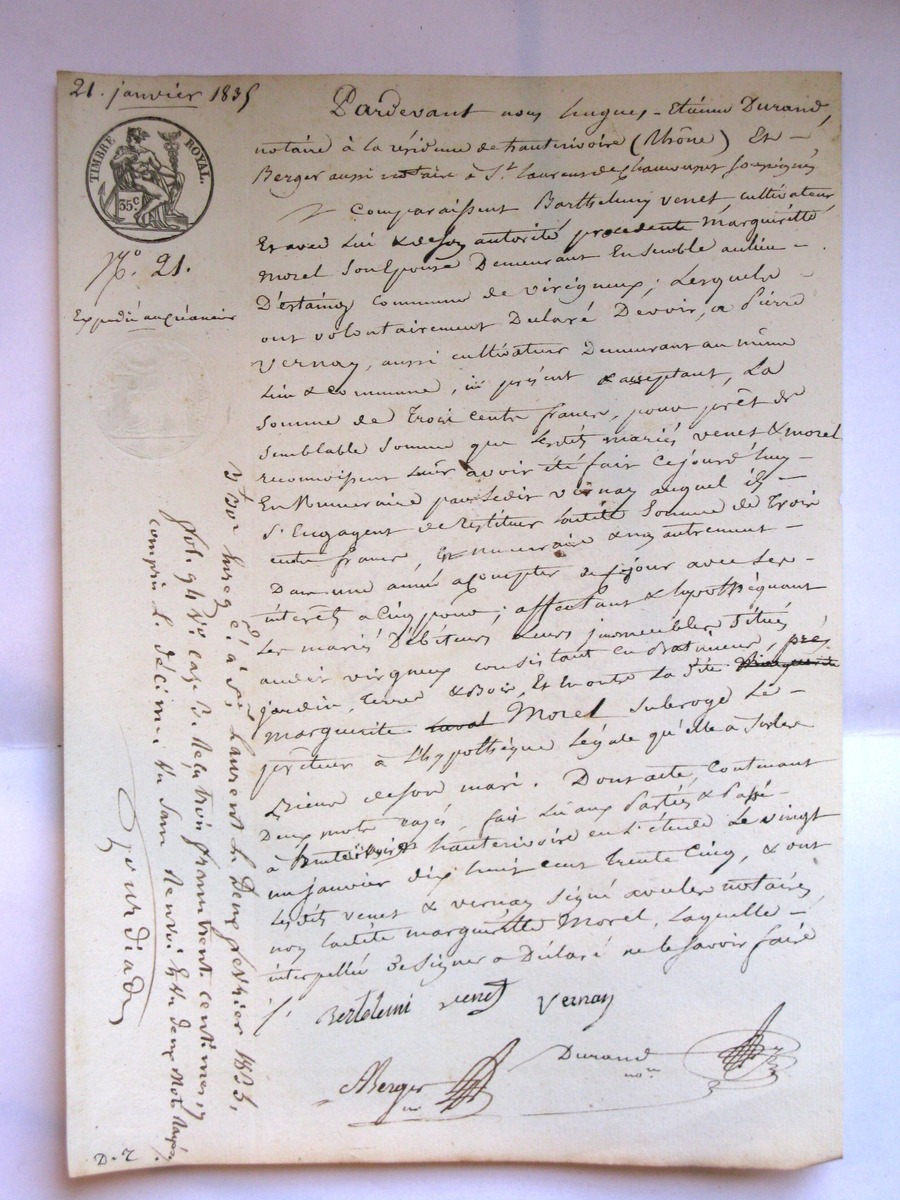 21. janvier 1835
TIMBRE ROYAL.
35c
No. 21.
Expédié au créancier
Pardevant nous hugues-Etienne Durand,
notaire à la résidence de hauterivoire (Rhône) Et
Berger aussi notaire à St. Laurent de Chamousset soussignés
Comparaissent Barthelemy venet cultivateur
Et avec Lui & de son autorité procedente Margueritte
Morel Son Epouse Demeurant Ensemble au lieu
D'estaimez Commune de virigneux; Lesquels
ont volontairement Déclaré Devoir, a Pierre
Vernay, aussi cultivateur Demeurant au même
Lieu & Commune, ici présent & acceptant, La
Somme de Trois Cents francs, pour prêt de
Semblable Somme que Lesdits mariés venet & morel
reconnoissent Leur avoir été fait Cejourd'huy
En Numeraire par Ledit vernay auquel ils
S'Engagent de restituer Ladite Somme de Trois
cents francs, En numeraire & non autrement
Dans une année a Compter de ce jour avec Les
intérêts a Cinq pour %; affectant & hypothéquant
Les mariés Débiteurs Leurs immeubles Situés
audit virigneux consistant en Batiments, prés,
jardin, Terres & Bois, Et En outre La dite Marguerite
Marguerite Morel subroge Le
prêteur à L'hypothèque Légale qu'elle a Sur les
Biens de son mari. Dont acte, Contenant
Deux mots rayés, fait Lu aux Parties & Passé
à hauterivoire en L'étude Le vingt
un janvier dix huit cent trente Cinq, & ont
Lesdits venet & vernay Signé avec les notaires
non Ladite marguerite Morel, Laquelle
interpellée De Signer a Déclaré ne le Savoir faire
Bertelemi venet Vernay
Berger
Durand
nore
Enregé. à St. Laurent Le Deux fevrier 1835,
fol. 94 Vo. case 3. Reçu trois francs trente centimes
compris Le décime Un Sans Renvoi Et Deux Mots Rayés
Gourdiad
D.2